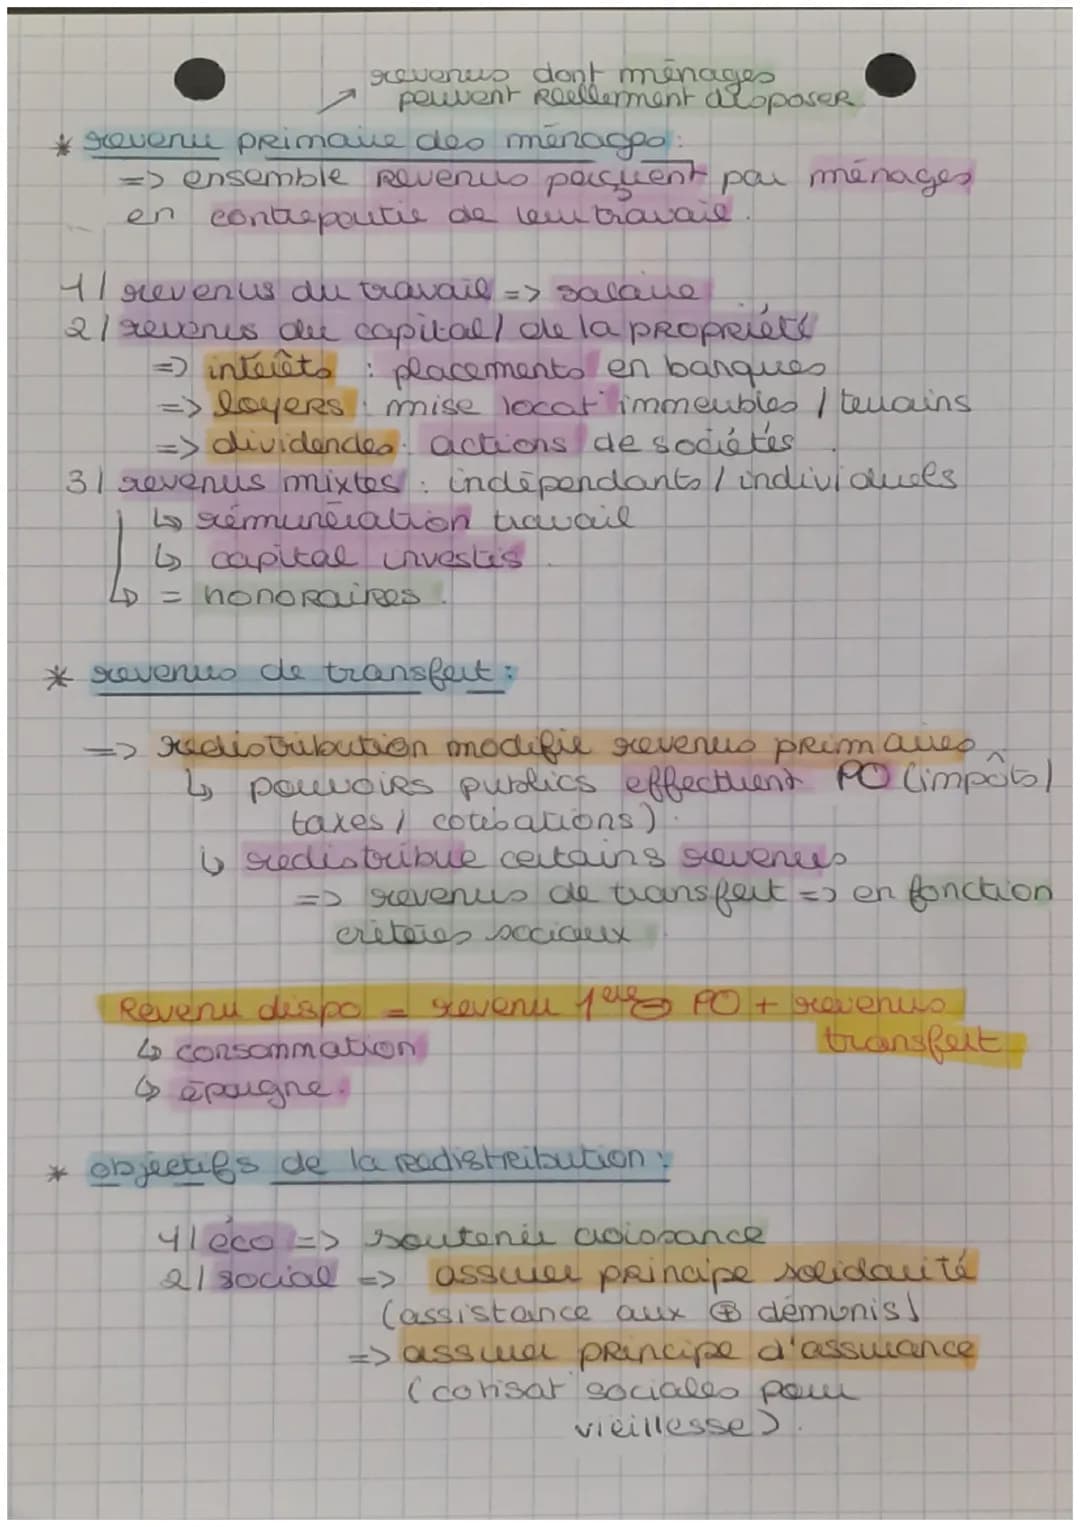 revenus dont ménages
peuvent Réellement disposer
* revenu primaire des ménages :
=> ensemble Revenus perçuent par ménages
en contrepartie de leur travail.
1/ revenus du travail => salaire
2/ revenus du capital / de la propriété
=> intérêts : placements en banques
=> loyers : mise locat° immeubles / terrains
=> dividendes : actions de sociétés.
3/ revenus mixtes : indépendants / individuels
↳ rémunération travail
↳ capital investis.
↳ = honoraires.
* revenus de transfert :
=> redistribution modifie revenus primaires
↳ pouvoirs publics effectuent PO (impôts /
taxes / cotisations).
↳ redistribue certains revenus
=> revenus de transfert => en fonction
critères sociaux
Revenu dispo = revenu 1ere ⊖ PO + revenus
transfert
↳ consommation
↳ épargne.
* objectifs de la readistribution :
1/ éco => soutenir croissance
2/ social => assurer principe solidarité
(assistance aux ⊕ démunis)
=> assurer principe d'assurance
(cotisat° sociales pour
vieillesse).